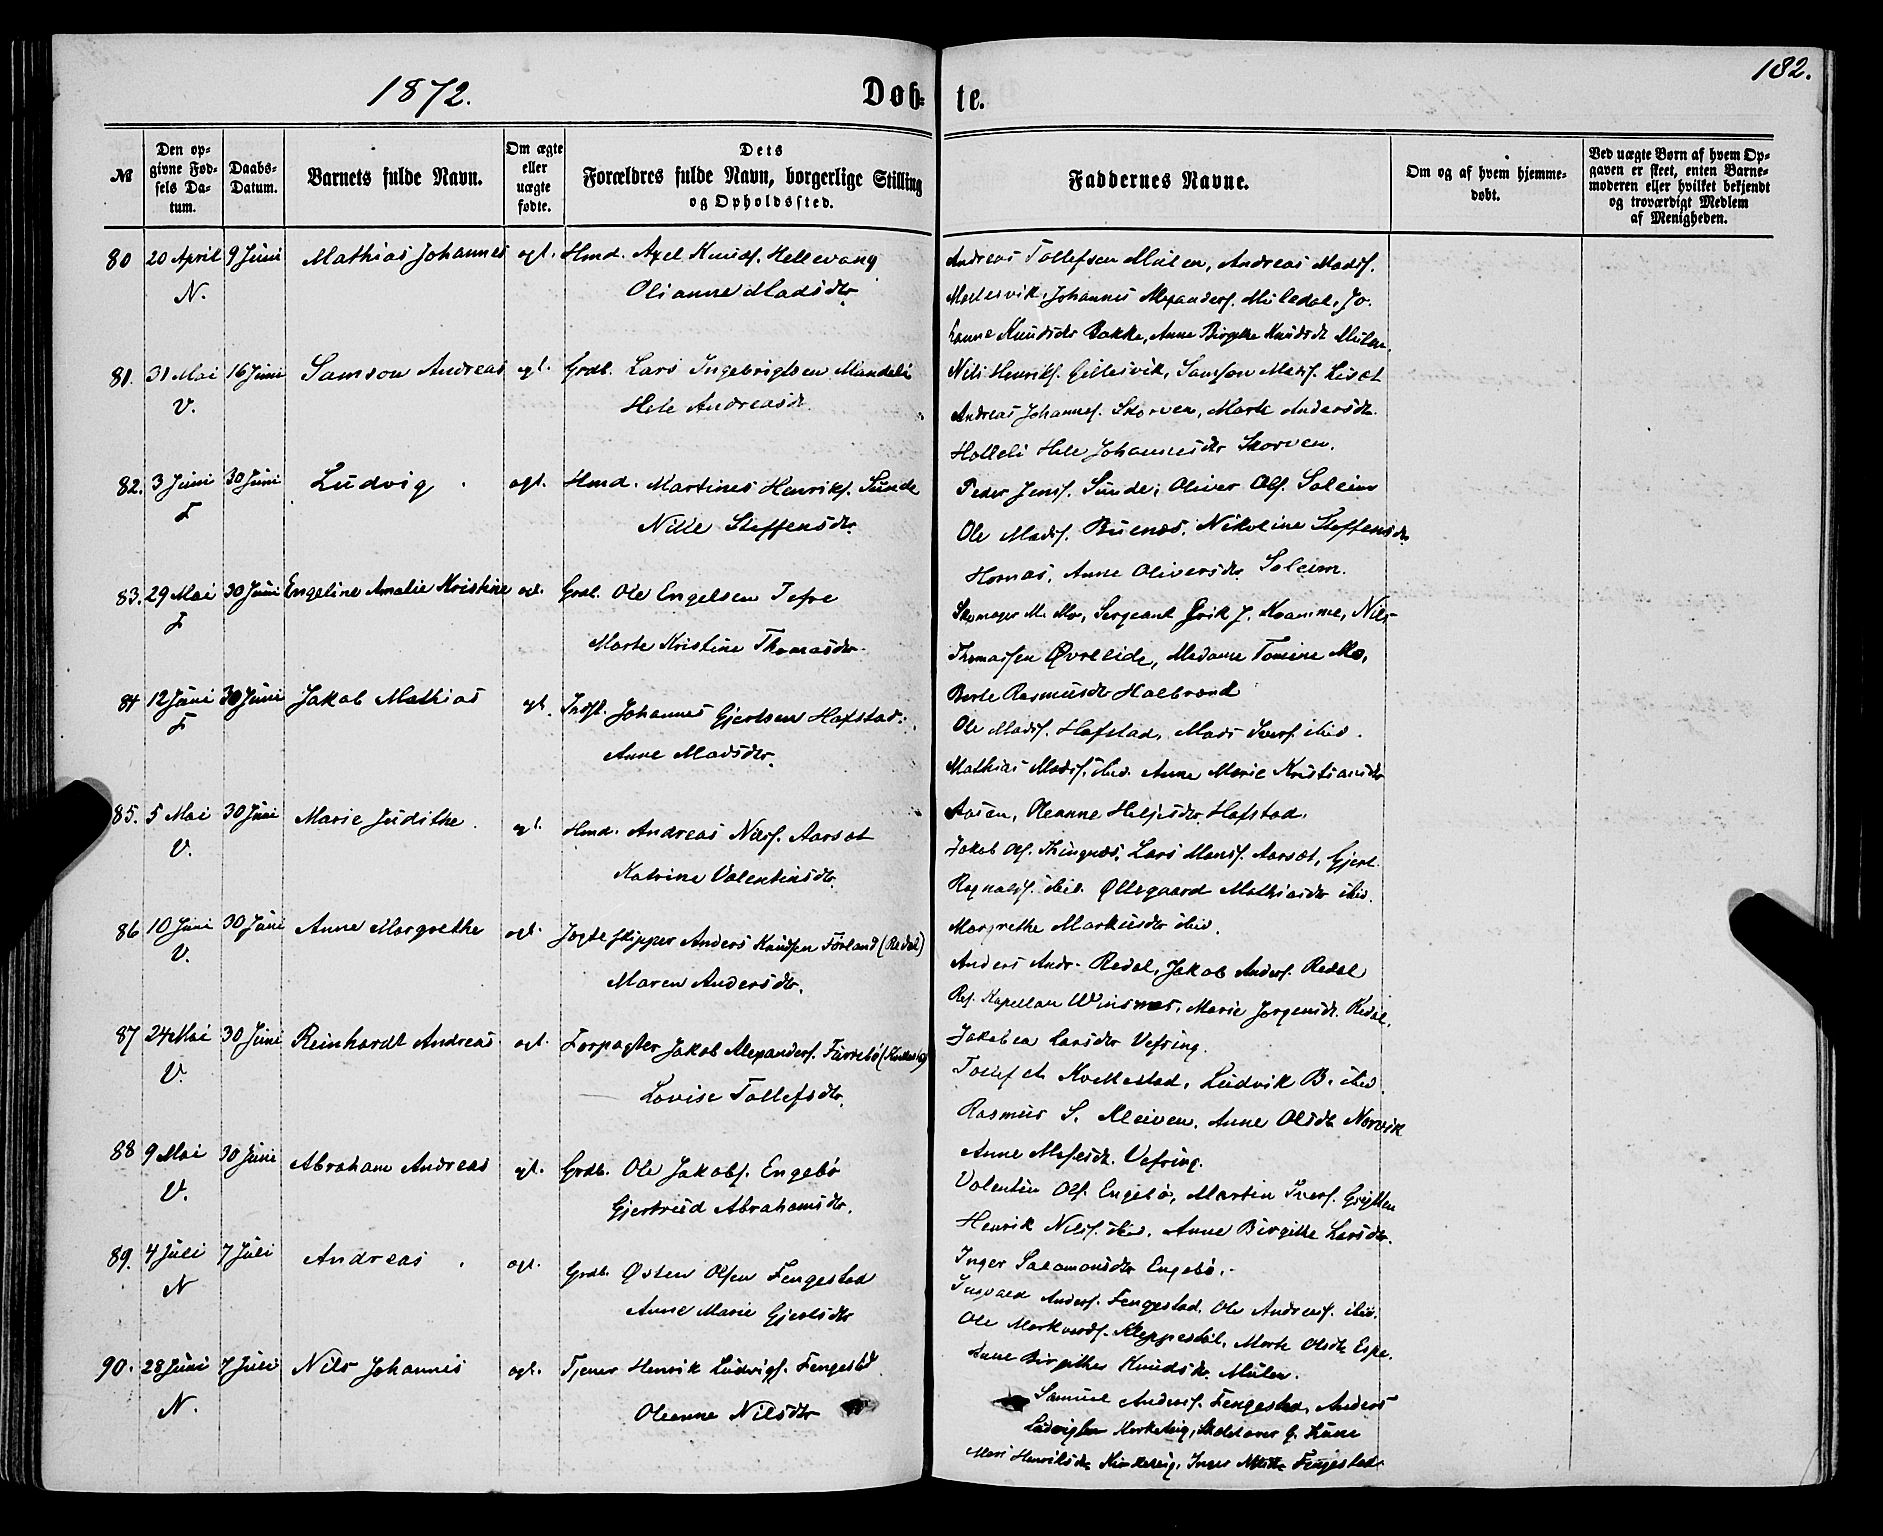 182.
1872.
Døb= te.
№
Den op=
givne Fød=
sels Da=
tum.
Daabs=
Datum.
Barnets fulde Navn.
Om ægte
eller
uægte
fødte.
Dets
Forældres fulde Navn, borgerlige Stilling
og Opholdssted.
Faddernes Navne.
Om og af hvem hjemme=
døbt.
Ved uægte Børn af hvem Op=
gaven er skeet, enten Barne=
moderen eller hvilket bekjendt
og troværdigt Medlem
af Menigheden.
80 20 April 9 Juni Mathias Johannes egt. Hmd. Axel Knuds. Hellevang
N. Olianne Madsdtr.
Andreas Tollefsen Mulen, Andreas Mads.
Johannes Alexanders. Muledal, Jo-
hanne Knudsdtr Bakke, Anne Birgitte Knudsdt Mulen.
81. 31 Mai 16 Juni Samson Andreas egt. Grdb. Lars Ingebrigtsen Mandeli
V. Hele Andreasdt.
Nils Henriks. Gillesvik, Samson Mads. Liset
Andreas Johannes. Skorven, Marte Andersdt.
Holleli Hele Johannesdtr Skorven.
82. 3 Juni 30 Juni Ludvig egt. Hmd. Martines Henriks. Sunde
F Nille Steffensdtr.
Peder Jens. Sunde, Oliver Ols. Soleim
Ole Mads. Buenes. Nikoline Steffensdtr.
Hornæs, Anne Oliversdtr. Soleim.
83. 29 Mai 30 Juni Engeline Amalie Kristine egt. Grdb. Ole Engelsen Tefre
F Marte Kristine Thomasdtr.
Skomager M. Mo, Sergeant Erik J. Kvamme, Nils
Thomassen Øvrelide, Madame Tomine Mo,
Berte Rasmusdtr Halbrend
84 12 Juni 30 Juni Jakob Mathias egt. Indst. Johannes Gjertsen Hafstad.
F Anne Madsdtr.
Ole Mads. Hafstad, Mads Ivers. ibid.
Mathias Mads. ibid. Anne Marie Kristiansdtr
Aasen, Oleanne Helgesdtr. Hafstad.
85. 5 Mai 30 Juni Marie Judithe egt. Hmd. Andreas Nils. Aarset
V. Katrine Valentinsdtr.
Jakob Ols. Thingnæs, Lars Mons. Aarset, Gjert
Ragnalds. ibid. Øllegaard Mathiasdtr ibid.
Margrethe Markusdtr ibid.
86 10 Juni 30 Juni Anne Margrethe egt. Jagteskipper Anders Knudsen Førland (Redal)
V. Maren Andersdtr.
Anders Andr. Redal, Jakob Anders. Redal
Res. Kapellan Winsnes, Marie Jørgensdt. Redal.
Jakobea Larsdtr Vefring.
87 24 Mai 30 Juni Reinhardt Andreas egt. Forpagter Jakob Alexanders. Furrebø
V. Lovise Tollefsdtr.
Tollef A. Kvellestad, Ludvik B. ibid
Rasmus S. Kleiven, Anne Olsdt Norvik
Anne Mosesdt. Vefring.
88 9 Mai 30 Juni Abraham Andreas egt. Grdb. Ole Jakobs. Engebø
V. Gjertrud Abrahamsdtr.
Valentin Ols. Engebø, Martin Ivers. Grytten
Henrik Nils. ibid. Anne Birgitte Larsdtr.
Inger Salamonsdtr Engebø.
89. 4 Juli 7 Juli Andreas egt. Grdb. Østen Olsen Fengestad
N Anne Marie Gjertsdtr
Anders. Fengestad, Ole Andreas. ibid.
Ole Markvards. Kleppestøl, Marte Olsdt Espe.
Anne Birgitte Knudsdtr. Mulen.
90. 28 Juni 7 Juli Nils Johannes egt. Tjener Henrik Ludvigs. Fengestd
N. Oleanne Nilsdtr
Samuel Anders. Fengestad, Anders
Ludvigsen
Mari Henriksdtr Fengestad